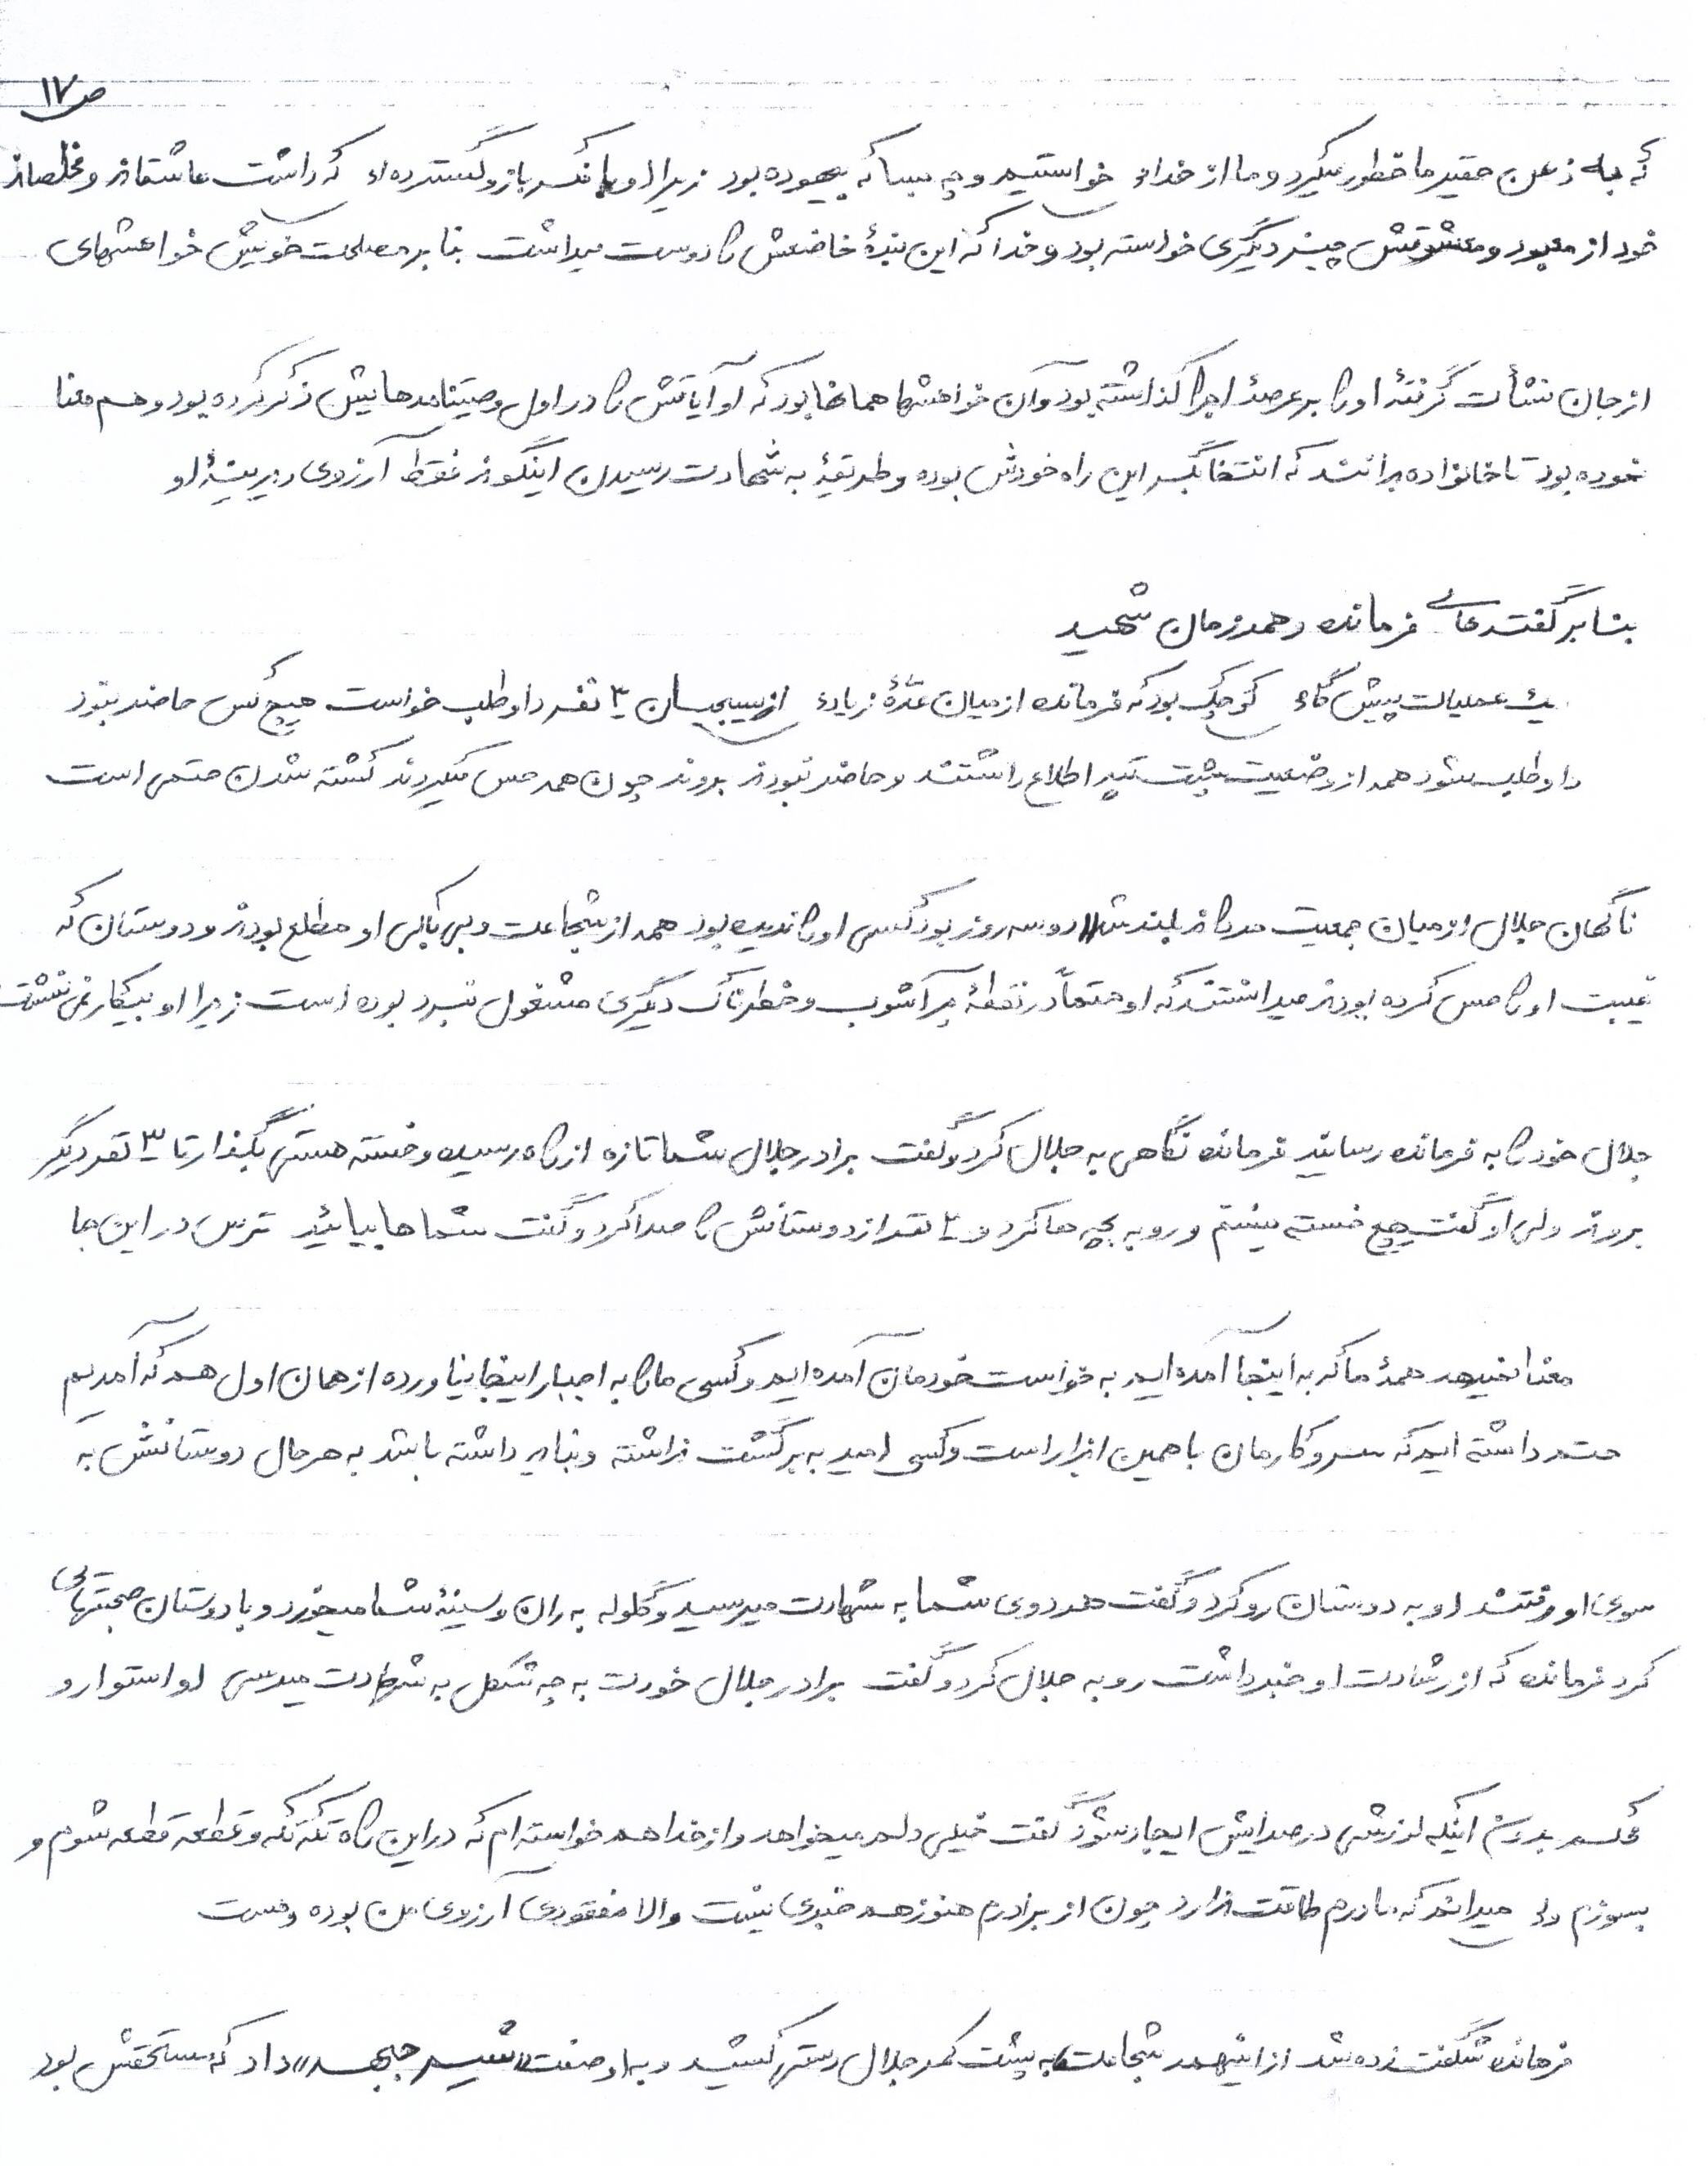 ص ۱۷
که به ذهن حقیر ما خطور میکرد و ما از خدا خواستیم و چه بسا که بیهوده بود زیرا او با فکر باز و گسترده‌ای که داشت عاشقانه و مخلصانه
خود از معبود و معشوقش چیز دیگری خواسته بود و خدا که این بندهٔ خاضعش را دوست میداشت بنا بر مصلحت خویش خواهشهای
از جان نشأت گرفتهٔ او را بر عرصهٔ اجرا گذاشته بود و آن خواهشها همانها بود که او آیاتش را در اول وصیتنامه‌هایش ذکر کرده بود و هم معنا
نموده بود تا خانواده بدانند که انتخابگر این راه خودش بوده و طریقهٔ به شهادت رسیدن اینگونه فقط آرزوی دیرینهٔ او
بنا بر گفته‌های فرمانده و همرزمان شهید
یک عملیات پیش گاه کوچک بود که فرمانده از میان عدّهٔ زیادی از بسیجیان ۳ نفر داوطلب خواست هیچ کس حاضر نبود
داوطلب شود همه از وضعیت پشت تپه اطلاع داشتند و حاضر نبودند بروند چون همه حس میکردند کشته شدن حتمی است
ناگهان جلال از میان جمعیت مردانه بلند شد دو سه روز بود کسی او را ندیده بود همه از شجاعت و بی باکی او مطلع بودند و دوستان که
غیبت او را حس کرده بودند میدانستند که او حتماً در نقطهٔ پر آشوب و خطرناک دیگری مشغول نبرد بوده است زیرا او بیکار نمی نشست
جلال خود را به فرمانده رسانید فرمانده نگاهی به جلال کرد و گفت برادر جلال شما تازه از راه رسیده و خسته هستی بگذار تا ۳ نفر دیگر
بروند ولی او گفت هیچ خسته نیستم و رو به بچه ها کرد و ۲ نفر از دوستانش را صدا کرد و گفت شماها بیائید ترس در این جا
معنا نمیدهد همهٔ ما که به اینجا آمده ایم به خواست خودمان آمده ایم و کسی ما را به اجبار اینجا نیاورده از همان اول هم که آمدیم
حتم داشته ایم که سر و کارمان با همین ابزار است و کسی امید به برگشت نداشته و نباید داشته باشد به هر حال دوستانش به
سوی او رفتند او به دوستان رو کرد و گفت هر دوی شما به شهادت میرسید و گلوله به ران و سینهٔ شما میخورد و با دوستان صحبتهائی
کرد فرمانده که از رشادت او خبر داشت رو به جلال کرد و گفت برادر جلال خودت به چه شکل به شهادت میرسی او استوار و
محکم بدون اینکه لرزشی در صدایش ایجاد شود گفت خیلی دلم میخواهد و از خدا هم خواسته ام که در این راه تکه تکه و قطعه قطعه شوم و
بسوزم ولی میدانم که مادرم طاقت ندارد چون از برادرم هنوز هم خبری نیست والا مفقودی آرزوی من بوده و هست
فرمانده شگفت زده شد از اینهمه شجاعت به پشت کمر جلال دستی کشید و به او صفت «شیر جبهه» داد که مستحقش بود